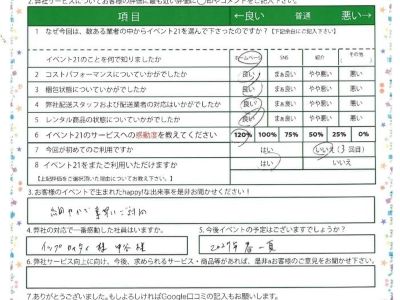 項目 ←良い 普通 悪い→
1 なぜ今回は、数ある業者の中からイベント21を選んで下さったのですか？【下記余白にご記入下さい】
イベント21のことを何で知りましたか ホームページ SNS 紹介 その他
2 コストパフォーマンスについていかがでしたか 良い まぁ良い やや悪い 悪い
3 梱包状態についていかがでしたか 良い まぁ良い やや悪い 悪い
4 弊社配送スタッフおよび配送業者の対応はいかがでしたか 良い まぁ良い やや悪い 悪い
5 レンタル商品の状態についていかがでしたか 良い まぁ良い やや悪い 悪い
6 イベント21のサービスへの感動度を教えてください 120% 100% 75% 50% 25% 0%
7 今回が初めてのご利用ですか はい いいえ(3回目)
8 イベント21をまたご利用いただけますか はい いいえ
【上記評価をご選択頂いた理由についてお教え下さい】
3.お客様のイベントで生まれたhappy!な出来事を是非お聞かせください!
細やかで素早いご対応
4.弊社の対応で一番感動した社員はいますか。
5.今後イベントの予定はございますでしょうか?
2027年春
6.弊社サービス向上に向け、今後、求められるサービス・商品等があれば、是非お客様のご意見をお聞かせ下さい。
7.ありがとうございました。もしよろしければGoogle口コミの記入もお願いします。